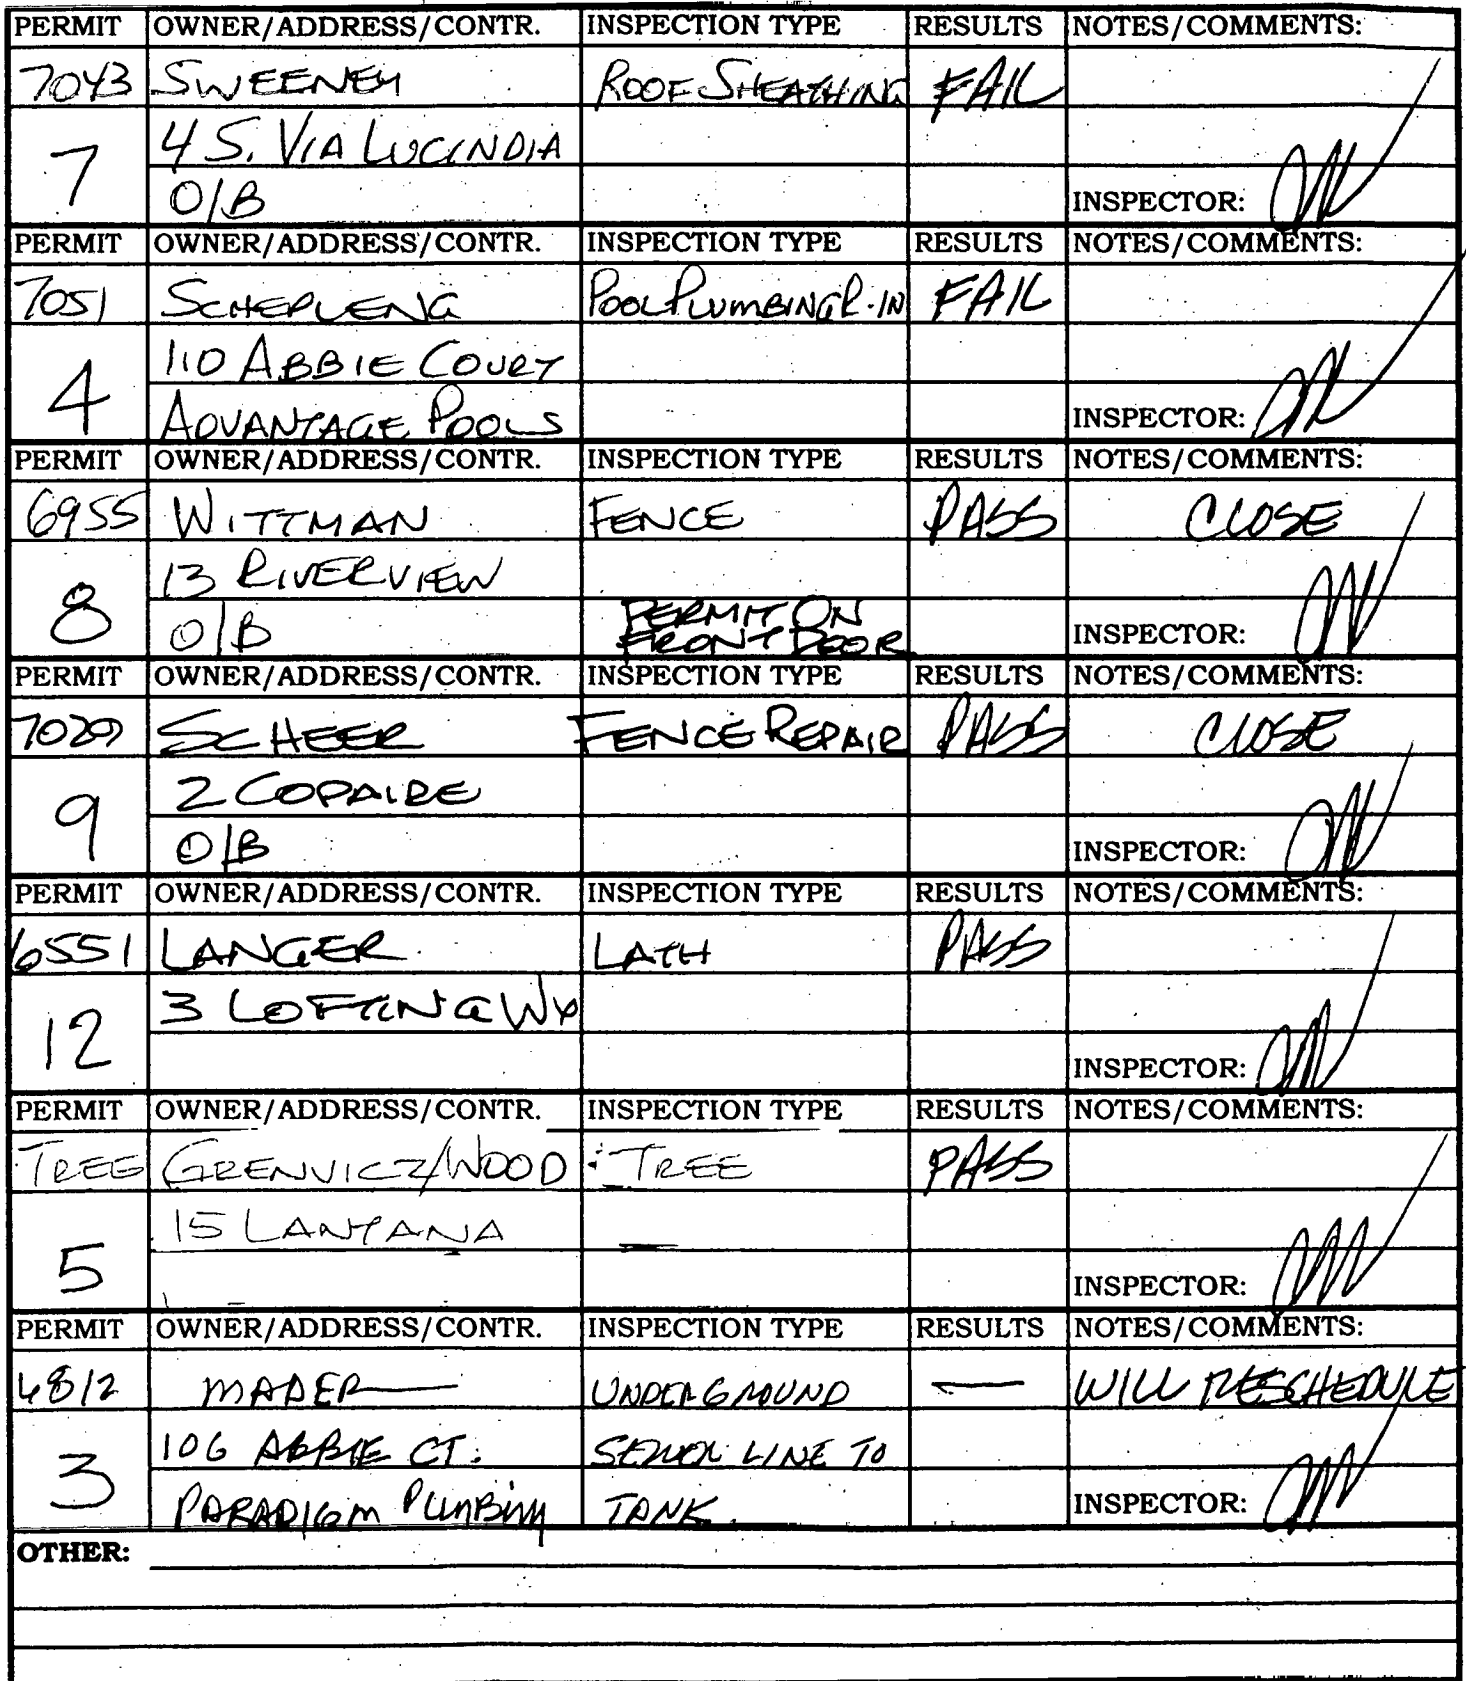 PERMIT OWNER/ADDRESS/CONTR. INSPECTION TYPE RESULTS NOTES/COMMENTS:
7043 SWEENEY ROOF SHEATHING FAIL
7 4 S. VIA LUCINDIA
O/B INSPECTOR:
PERMIT OWNER/ADDRESS/CONTR. INSPECTION TYPE RESULTS NOTES/COMMENTS:
7051 SCHEPLENG POOL PLUMBING R-IN FAIL
4 110 ABBIE COURT
ADVANTAGE POOLS INSPECTOR:
PERMIT OWNER/ADDRESS/CONTR. INSPECTION TYPE RESULTS NOTES/COMMENTS:
6955 WITTMAN FENCE PASS CLOSE
8 13 RIVERVIEW
O/B PERMIT ON FRONT DOOR INSPECTOR:
PERMIT OWNER/ADDRESS/CONTR. INSPECTION TYPE RESULTS NOTES/COMMENTS:
SCHEER FENCE REPAIR PASS CLOSE
9 2 COPAIRE
O/B INSPECTOR:
PERMIT OWNER/ADDRESS/CONTR. INSPECTION TYPE RESULTS NOTES/COMMENTS:
6551 LANGER LATH PASS
12 3 LOFTING WY
INSPECTOR:
PERMIT OWNER/ADDRESS/CONTR. INSPECTION TYPE RESULTS NOTES/COMMENTS:
TREE GRENVICZ/WOOD TREE PASS
5 15 LANTANA
INSPECTOR:
PERMIT OWNER/ADDRESS/CONTR. INSPECTION TYPE RESULTS NOTES/COMMENTS:
6812 MADER UNDERGROUND — WILL RESCHEDULE
3 106 ABBIE CT. SEWER LINE TO
PARADIGM PLUMBING TANK INSPECTOR:
OTHER: